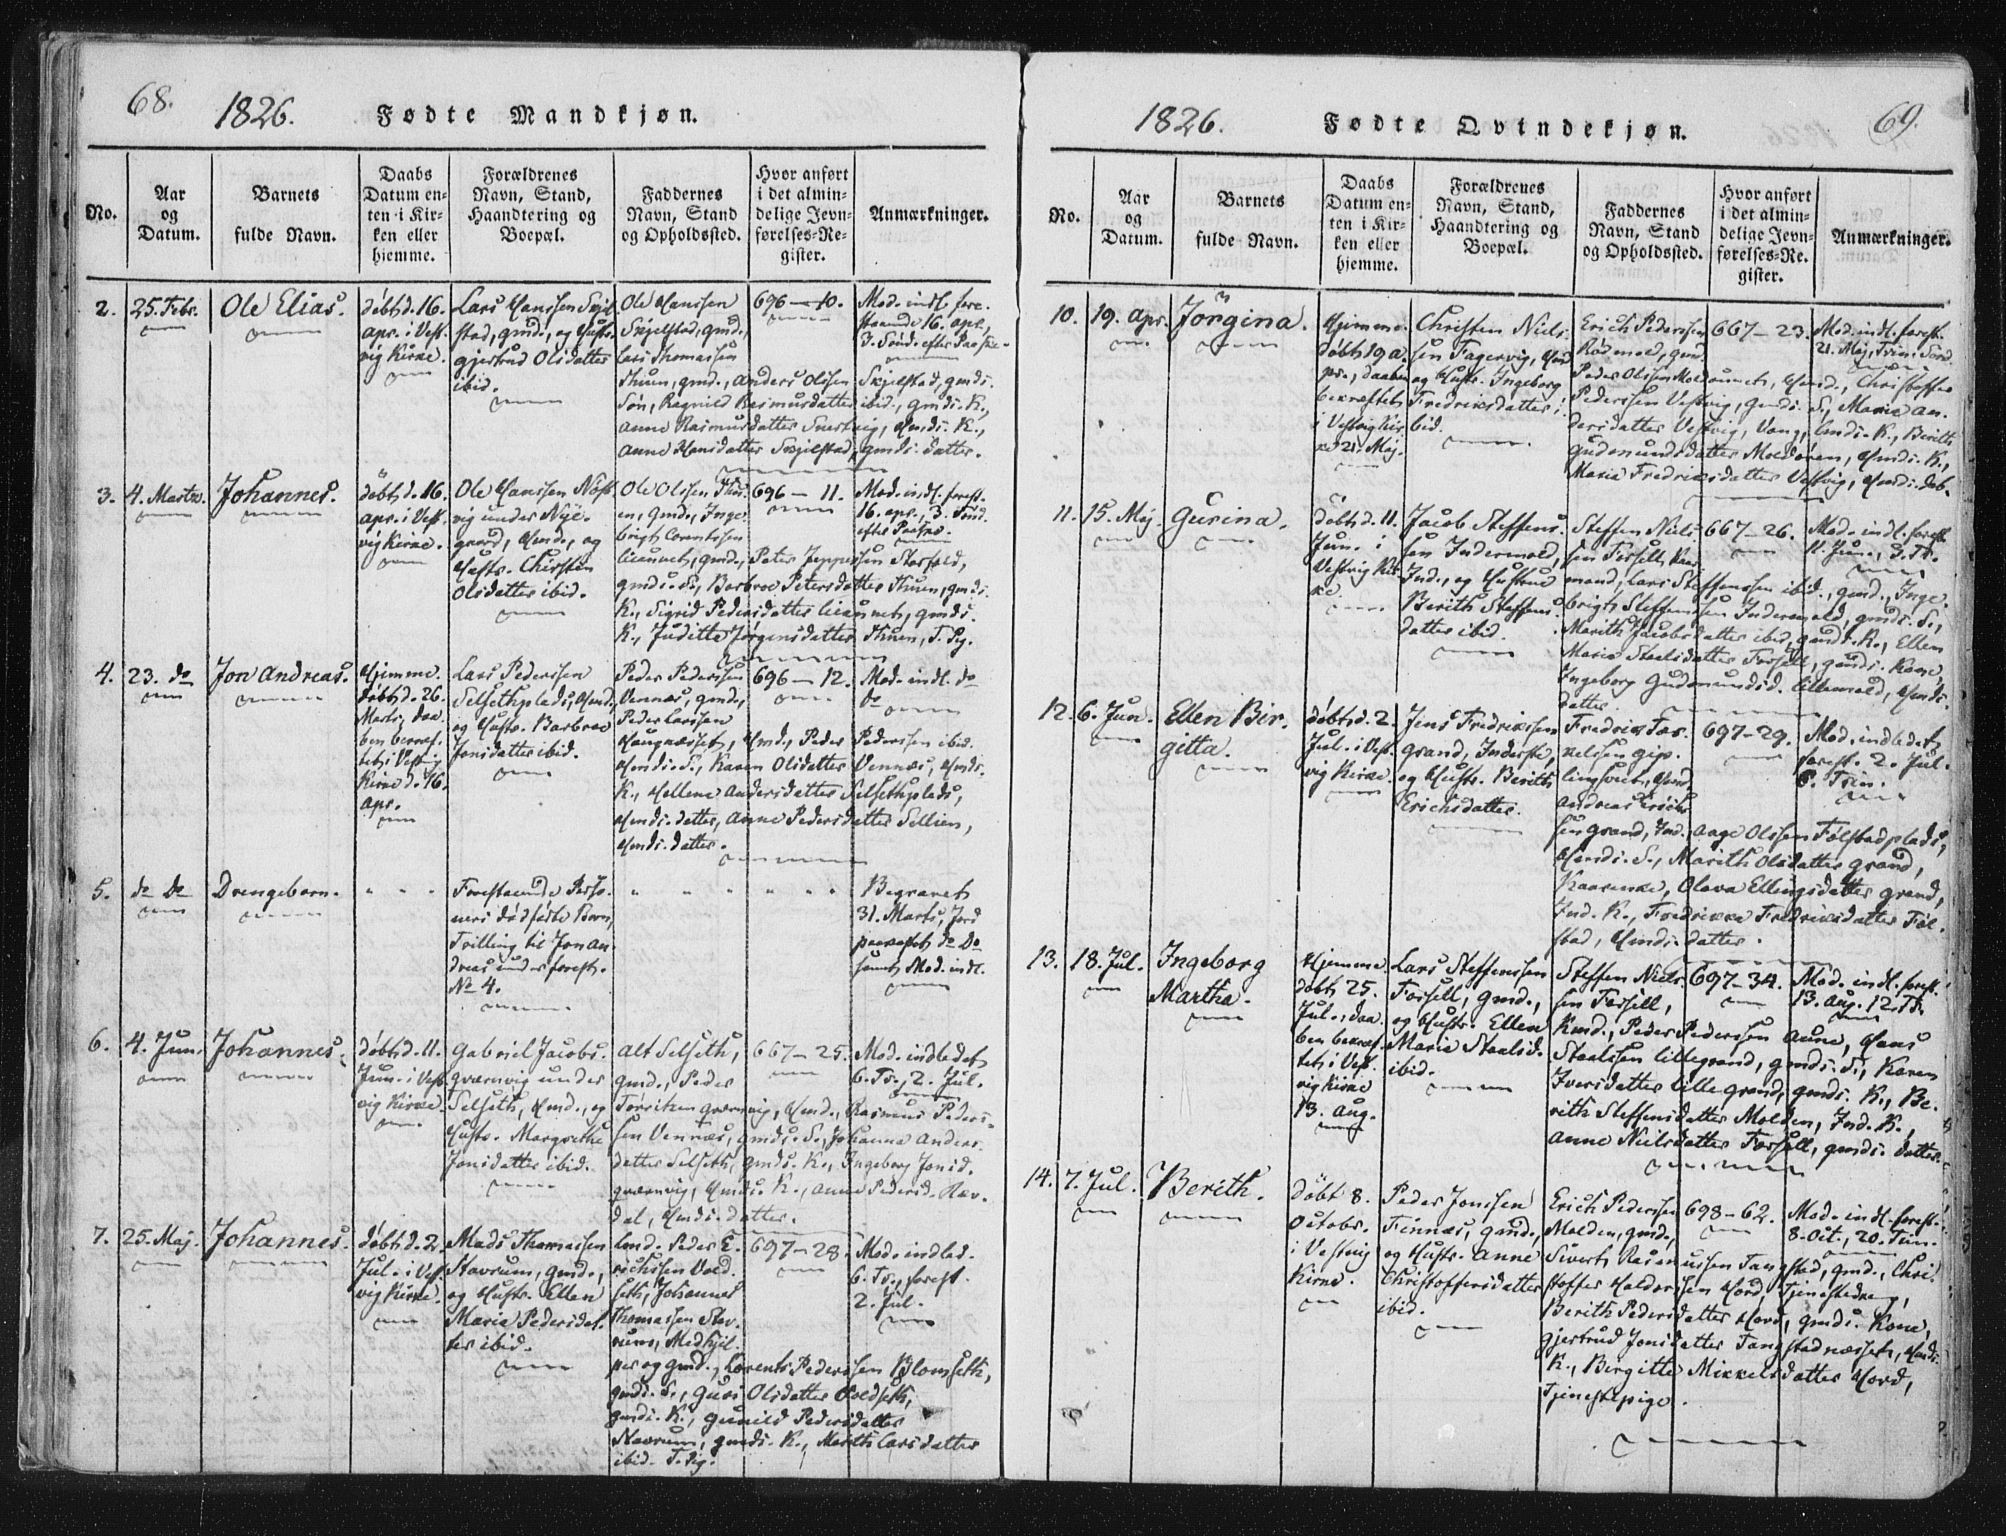 68.
1826.
Fødte Mandkjøn.
No.
Aar
og
Datum.
Barnets
fulde Navn.
Daabs
Datum en-
ten i Kir-
ken eller
hjemme.
Forældrenes
Navn, Stand,
Haandtering og
Boepæl.
Faddernes
Navn, Stand
og Opholdssted.
Hvor anført
i det almin-
delige Jevn-
førelses-Re-
gister.
Anmærkninger.
2.
25. Febr.
Ole Elias.
døbt d. 16.
apr. i Vest-
vig Kirke.
Lars Hanssen
stad, gmd., og Hustr.
gjertrud Olsdatter
ibid.
Ole Hanssen
Skjelstad, gmd.,
Lars Thomassen
Thuen, gmd., Anders Olssen Skjelstad, gmds.
Søn, Ragnild Rasmusdatter ibid., gmds. K.,
Anne Rasmusdatter
Anne Hansdatter Skjelstad, gmds. datter.
696 — 10.
Mod. indl. fore-
staaende 16. apr.,
3. Sønd. efter Paaske.
3.
4. Marts.
Johannes.
døbt d. 16.
apr. i Vest-
vig Kirke.
Ole Hanssen
vig under Nye-
gaard, Hmd., og
Hustr. Chirsten
Olsdatter ibid.
Ole Olssen Thu-
en, gmd., Inge-
brigt Corneliussen
gmd., Peter Jeppessen Storfold,
gmds. S., Barbroe Petersdatter Thuen, gmds.
K., Sigrid Pedersdatter gmds.
K., Juditte Jørgensdatter Thuen, T. Pg.
696 — 11.
Mod. indl. forest.
16. apr., 3. Sønd.
efter Paaske.
4.
23. do
Jon Andreas.
Hjemme-
døbt d. 26.
Marts, daa-
ben bekræf-
tet i Vestvig
Kirke d. 16.
apr.
Lars Pederssen
Selsethplads, Hmd.,
og Hustr. Barbroe
Jonsdatter ibid.
Peder Pederssen
Vennæs, gmd.,
Peder Larssen
Haugnæsset, Hmd., Peder Pederssen ibid.
Hmds. S., Karen Olsdatter Vennæs, Hmds.
K., Hellene Andersdatter Selsethplads,
Hmds. datter, Anne Pedersdatter Sellien,
Hmds. datter.
696 — 12.
Mod. indl. do
do
5.
do do
Drengebarn.
" " "
Forestaaende Perso-
ners dødfødte Barn,
Tvilling til Jon An-
dreas under forest.
No 4.
" " " " " "
Begravet
31. Marts, Jord
paakastet do do
samt Mod. indl.
6.
4. Jun.
Johannes.
døbt d. 11.
Jun. i Vest-
vig Kirke.
Gabriel Jacobs.
qværnvig under
Selseth, Hmd., og
Hustr. Margrethe
Jonsdatter ibid.
Alt Selseth,
gmd., Peder
Torstsen qværnvig, Hmd., Rasmus Peders-
sen Vennæs, gmds. S., Johanna Anders-
datter Selseth, gmds. K., Ingeborg Jonsd.
qværnvig, Hmds. K., Anne Pedersd. Røv-
dal, Hmds. datter.
667 — 25.
Mod. indledet
6. Tr., 2. Jul.
7.
25. Maj.
Johannes.
døbt d. 2.
Jul. i Vest-
vig Kirke.
Mads Thomassen
Stavrum, gmd.,
og Hustr. Ellen
Marie Pedersdat-
ter ibid.
Lmd. Peder E-
richssen Vold-
seth, Johannes
Thomassen Stav-
rum, Medhjel-
per og gmd., Lorents Pederssen Blomseth,
gmds. S., Guri Olsdatter Voldseth,
gmds. K., Gunild Pedersdatter
Stavrum, gmds. K., Marith Larsdatter
ibid. T. Pg.
697 — 28.
Mod. indled.
6. Tr., forest.
2. Jul.
1826.
Fødte Qvindekjøn.
69.
No.
Aar
og
Datum.
Barnets
fulde Navn.
Daabs
Datum en-
ten i Kir-
ken eller
hjemme.
Forældrenes
Navn, Stand,
Haandtering og
Boepæl.
Faddernes
Navn, Stand
og Opholdssted.
Hvor anført
i det almin-
delige Jevn-
førelses-Re-
gister.
Anmærkninger.
10.
19. apr.
Jörgina.
Hjemme-
døbt 19 a-
pr., daaben
bekræftet
i Vestvig Kir-
ke 21. Maj.
Christen Niels-
sen Fagervig, Hmd.
og Hustr. Ingeborg
Fredriksdatter i-
bid.
Erich Pederssen
Rødmold, gmd.
Peder Olssen Hmd., Christoffer
Pederssen Vestvig, gmds. S., Marie An-
dersdatter Vestvig, Vang, Hmds. K., Berith
Gudmundsdatter Moldøren, Hmds. K.,
Maria Fredriksdatter Vestvig, Hmds. dat.
667 — 23.
Mod. indl. forest.
21. Maj, Trin. Sønd.
11.
15. Maj.
Gurina.
døbt d. 11.
Jun. i
Vestvig Kir-
ke.
Jacob Steffens-
sen Indremold,
Ind., og Hustrue
Berith Steffens-
datter ibid.
Steffen Niels-
sen Farsell, Kaar-
mand, Lars Steffenssen ibid., gmd., Inge-
brigt Steffenssen Indremold, gmds. S.,
Marith Jacobsdatter ibid, gmds. K., Ellen
Maria Staalsdatter Farsell, gmds. Kone,
Ingeborg Gudmundsd. Lillemold, Hmds.
datter.
667 — 26.
Mod. indl. forest.
11. Jun., 3. Tr.
12.
6. Jun.
Ellen Bir-
gitta.
døbt d. 2.
Jul. i Vest-
vig Kirke.
Jens Fredrikssen
grand, Inderst,
og Hustr. Berith
Erichsdatter.
Fredrik Tær-
kelsen
Hmd.,
Andreas Erichs-
sen grand, Ind., Aage Olssen Følstadplads,
Hmds. S., Marith Olsdatter grand,
Kaarenke, Olava Ellingsdatter grand,
Ind. K., Fredrikke Fredriksdatter Føl-
stad, Hmds. datter.
697 — 29.
Mod. indledet
forest. 2. Jul.
6. Trin.
13.
18. Jul.
Ingeborg
Martha.
Hjemme-
døbt 25.
Jul., daa-
ben bekræf-
tet i Vest-
vig Kirke
13. Aug.
Lars Steffenssen
Farsell, gmd.,
og Hustr. Ellen
Maria Staalsd.
ibid.
Steffen Niels-
sen Farsell,
Kmd., Peder Pederssen Aune, Hans
Staalssen Lillegrand, gmds. S., Karen
Iversdatter Lillegrand, gmds. K., Be-
rith Steffensdatter Molden, Ind. K.,
Anne Nielsdatter Farsell, gmds. datter.
697 — 34.
Mod. indl. forest.
13. Aug. 12. Tr.
14.
7. Jul.
Berith.
døbt 8.
Octobr.
i Vestvig
Kirke.
Peder Jonssen
Finnæs, gmd.,
og Hustr. Anne
Christoffersdatter
ibid.
Erich Pederssen
Molden, gmd.,
Sivert Rasmussen Tangstad, gmd., Chri-
stoffer Halvorssen Hord, Tjenestedreng,
Berith Pedersdatter Hord, gmds. Kone,
gjertrud Jonsdatter Tangstadnæsset, Hmds.
K., Birgitte Mikkelsdatter Hord,
Tjenestepige.
698 — 62.
Mod. indl. forest.
8. Oct., 20. Trin.